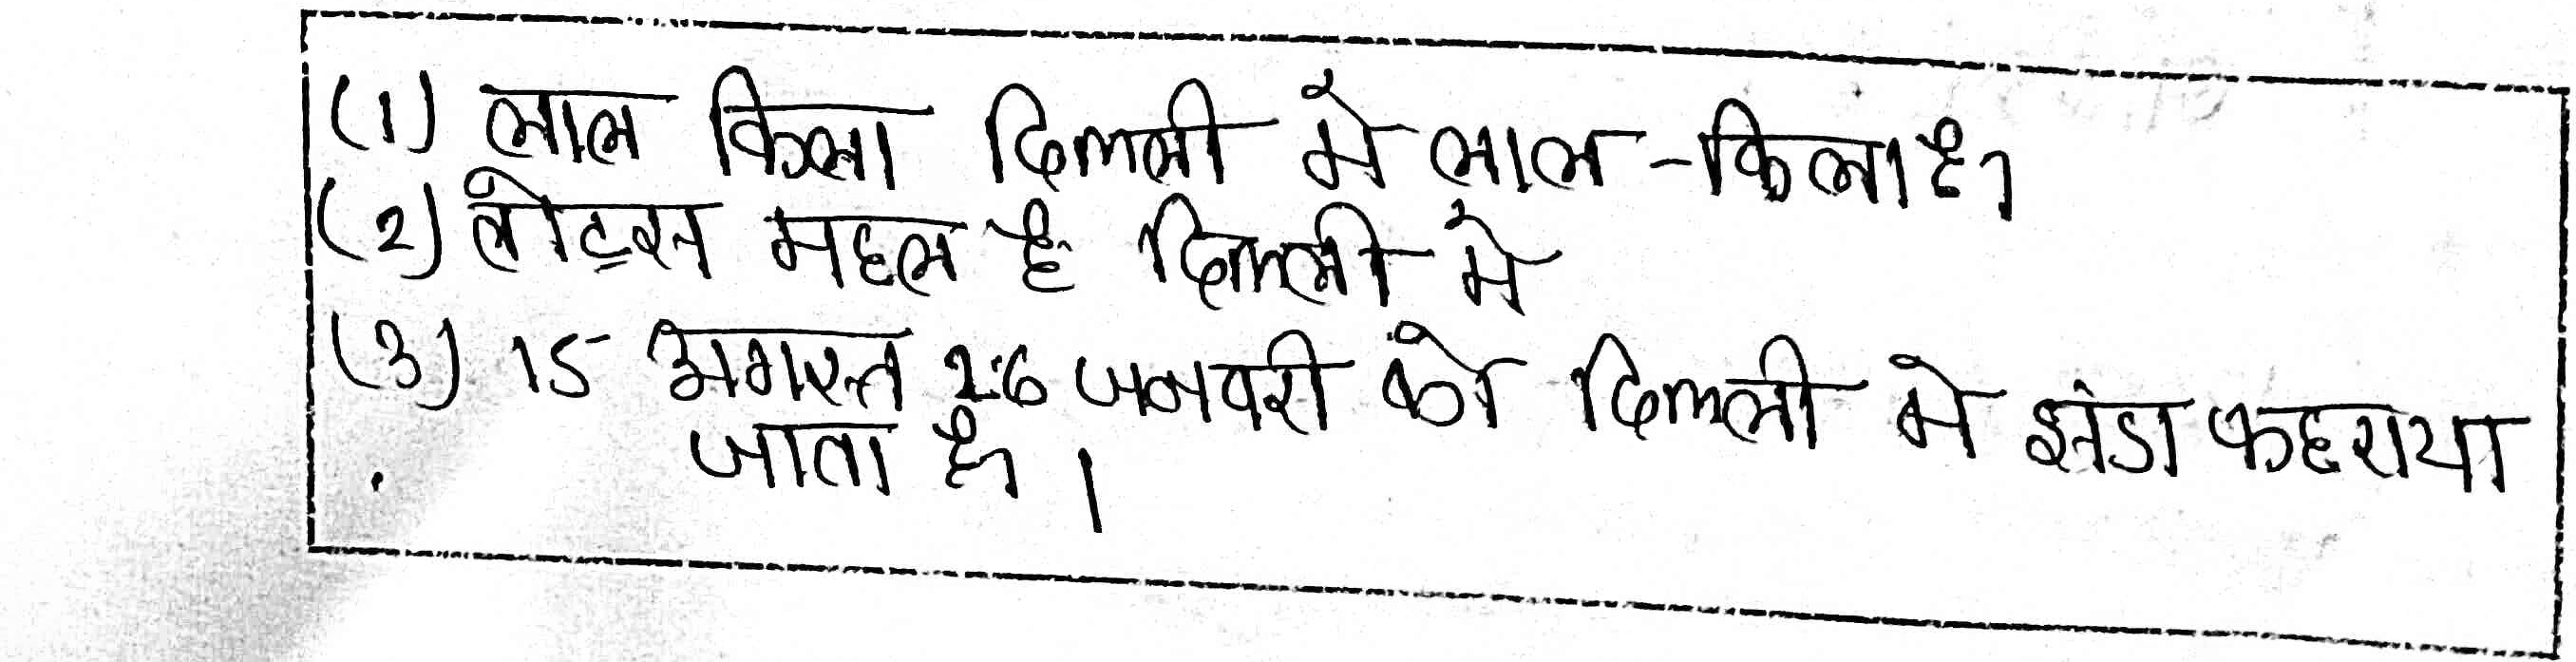 (1) लाल किला दिल्ली में लाल-किला है।
(2) लोट्स महल है दिल्ली में
(3) 15 अगस्त 26 जनवरी को दिल्ली मे झंडा फहराया
जाता है।